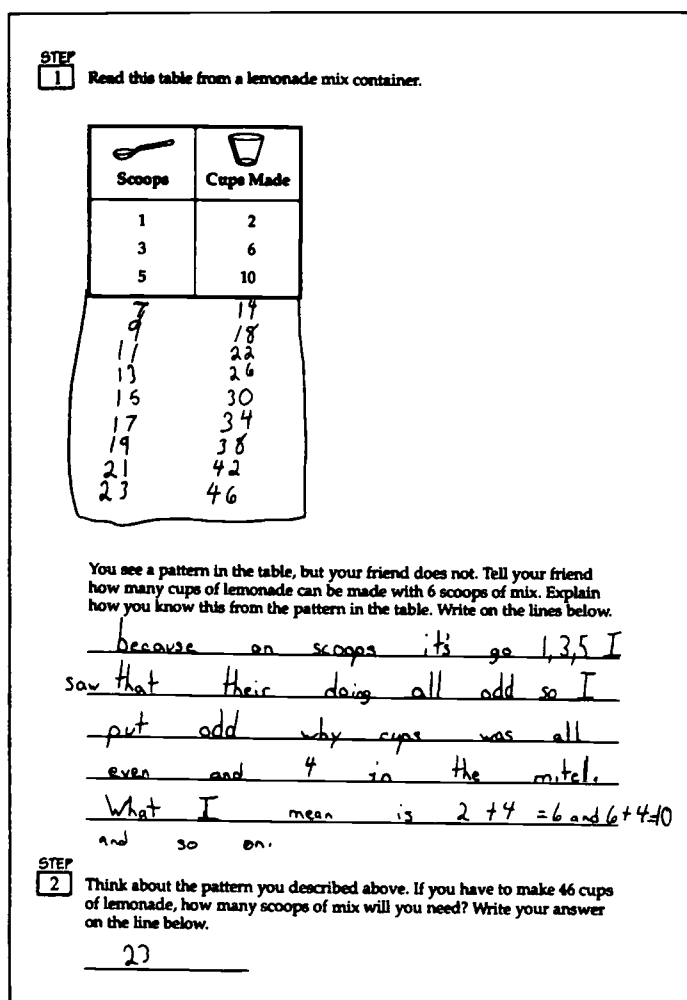 STEP
1 Read this table from a lemonade mix container.
Scoops Cups Made
1 2
3 6
5 10
7 14
9 18
11 22
13 26
15 30
17 34
19 38
21 42
23 46
You see a pattern in the table, but your friend does not. Tell your friend
how many cups of lemonade can be made with 6 scoops of mix. Explain
how you know this from the pattern in the table. Write on the lines below.
because on scoops it's go 1,3,5 I
saw that their doing all odd so I
put odd why cups was all
even and 4 in the mitel.
What I mean is 2 +4 =6 and 6+4=10
and so on.
STEP
2 Think about the pattern you described above. If you have to make 46 cups
of lemonade, how many scoops of mix will you need? Write your answer
on the line below.
23